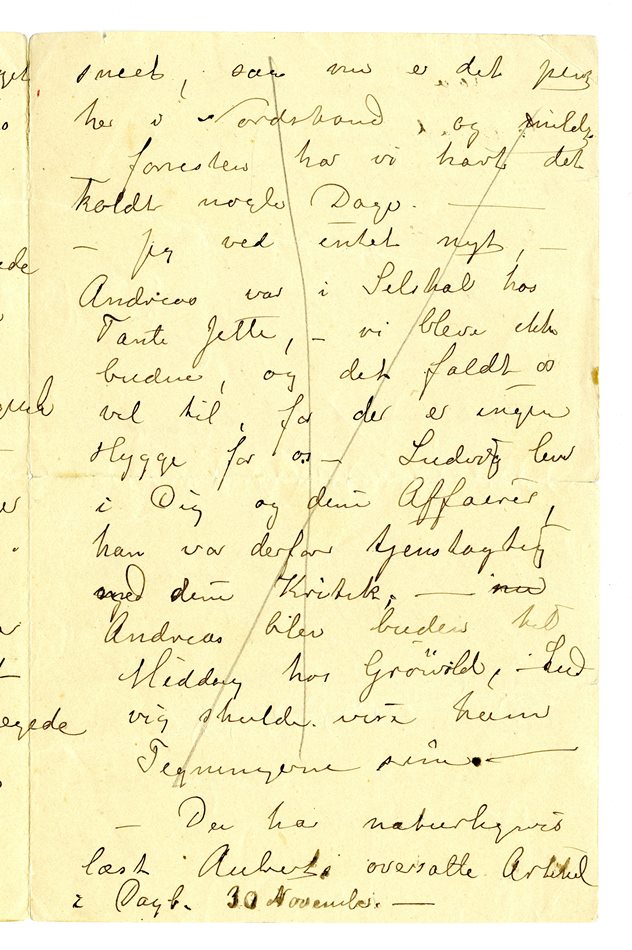 sneet, saa nu er det pent
her i Nordstrand, og mildt,
forresten har vi havt det
koldt nogle Dage. —
— Jeg ved intet nyt, —
Andreas var i Selskab hos
Tante Jette, — vi bleve ikke
budne, og det faldt os
vel til, for der er ingen
Hygge for os — Ludvig lever
i Dig og dine Affairer,
han var derfor
med dine Kritik. —
Andreas blev buden til
Middag hos Grönvold, — Lud
vig skulde vise ham
Tegningerne sine. —
— Du har naturligvis
læst Auberts oversatte Artikel
i Dagb. 30 November. —